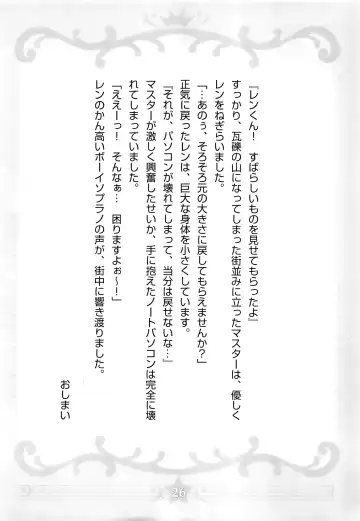 『レンくん！　すばらしいものを見せてもらったよ』
すっかり、瓦礫の山になってしまった街並みに立ったマスターは、優しく
レンをねぎらいました。
「…あのぅ、そろそろ元の大きさに戻してもらえませんか？」
正気に戻ったレンは、巨大な身体を小さくしています。
『それが、パソコンが壊れてしまって、当分は戻せないな…』
マスターが激しく興奮したせいか、手に抱えたノートパソコンは完全に壊
れてしまっていました。
「ええーっ！　そんなぁ…　困りますよぉ〜！」
レンのかん高いボーイソプラノの声が、街中に響き渡りました。
おしまい
26